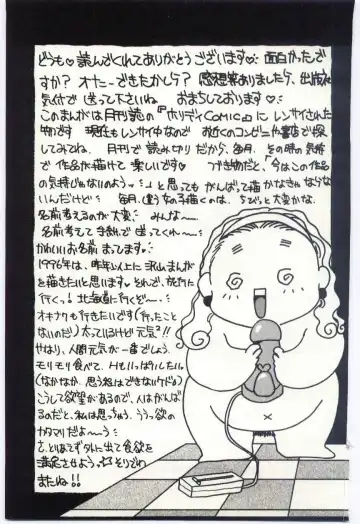 どうも♡読んでくれてありがとうございます♡ 面白かったで
すか？オナニーできたかしら？感想等ありましたら、出版社
気付で送って下さいね。おまちしております♡
このまんがは月刊誌の『ホリディCOMIC』にレンサイされた
物です 現在もレンサイ中なので お近くのコンビニや書店で探
してみてね。月刊で読み切りだから、毎月、その時の気持
で作品が描けて楽しいです♡ つづき物だと、「今はこの作品
の気持じゃないのよう…」と思っても がんばって描かなきゃならな
いんだけど 毎月、違う女の子描くのは、ちびっと大変かな。
名前考えるのが大変。みんな〜
名前考えて手紙で送ってくれ〜
かわいいお名前まってます。
1996年は、昨年以上に沢山まんが
を描きたいと思います♡それで、旅行に
行くっ！北海道に行くど〜。
オキナワも行きたいです(行ったこと
ないのだ)太っているけど元気？!!
やはり、人間元気が一番でしょう。
モリモリ食べて、Hもいっぱいしたいっ
(なかなか思う程はできないケドね)
こうして欲望があるので、人はがんば
るのだと、私は思っちゃう。ううっ欲の
カタマリだよ〜う
さ、とりあえず外に出て食欲を
満足させよう。それでわ
またね!!